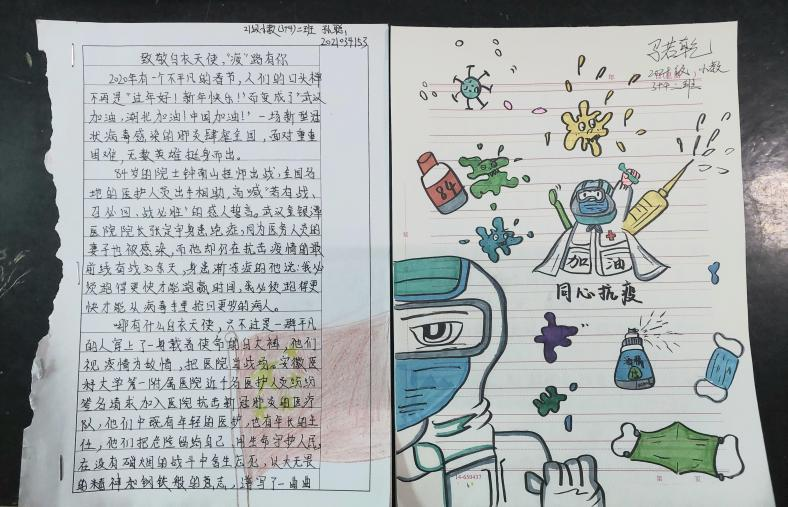 21级小教(3+4)二班
2021034153
致敬白衣天使,“疫”路有你
2020年有一个不平凡的春节,人们的口头禅
不再是“过年好!新年快乐!”而变成了“武汉
加油,湖北加油!中国加油!”一场新型冠
状病毒感染的肺炎肆虐全国,面对重重
困难,无数英雄挺身而出。
84岁的院士钟南山挂帅出战,全国各
地的医护人员出手相助,高喊“若有战,
召必回,战必胜”的感人誓言。武汉金银潭
医院院长张定宇身患绝症,同为医务人员的
妻子也被感染,而他却仍在抗击疫情的最
前线奋战30余天,身患渐冻症的他说:我必
须跑得更快才能跑赢时间,我必须跑得更
快才能从病毒手里抢回更多的病人。
哪有什么白衣天使,只不过是一群平凡
的人穿上了一身载着使命的白大褂,他们
视疫情为敌情,把医院当战场。安徽医
科大学第一附属医院近千名医护人员纷纷
签名请求加入医院抗击新冠肺炎的医疗
队,他们中既有年轻的医护,也有年长的主
任,他们把危险留给自己,用生命守护人民,
在没有硝烟的战斗中舍生忘死,以大无畏
的精神和钢铁般的意志,谱写了一曲曲
马若乾
小教
3+4二班
84
加油
同心抗疫
酒精
14-650437
第 页